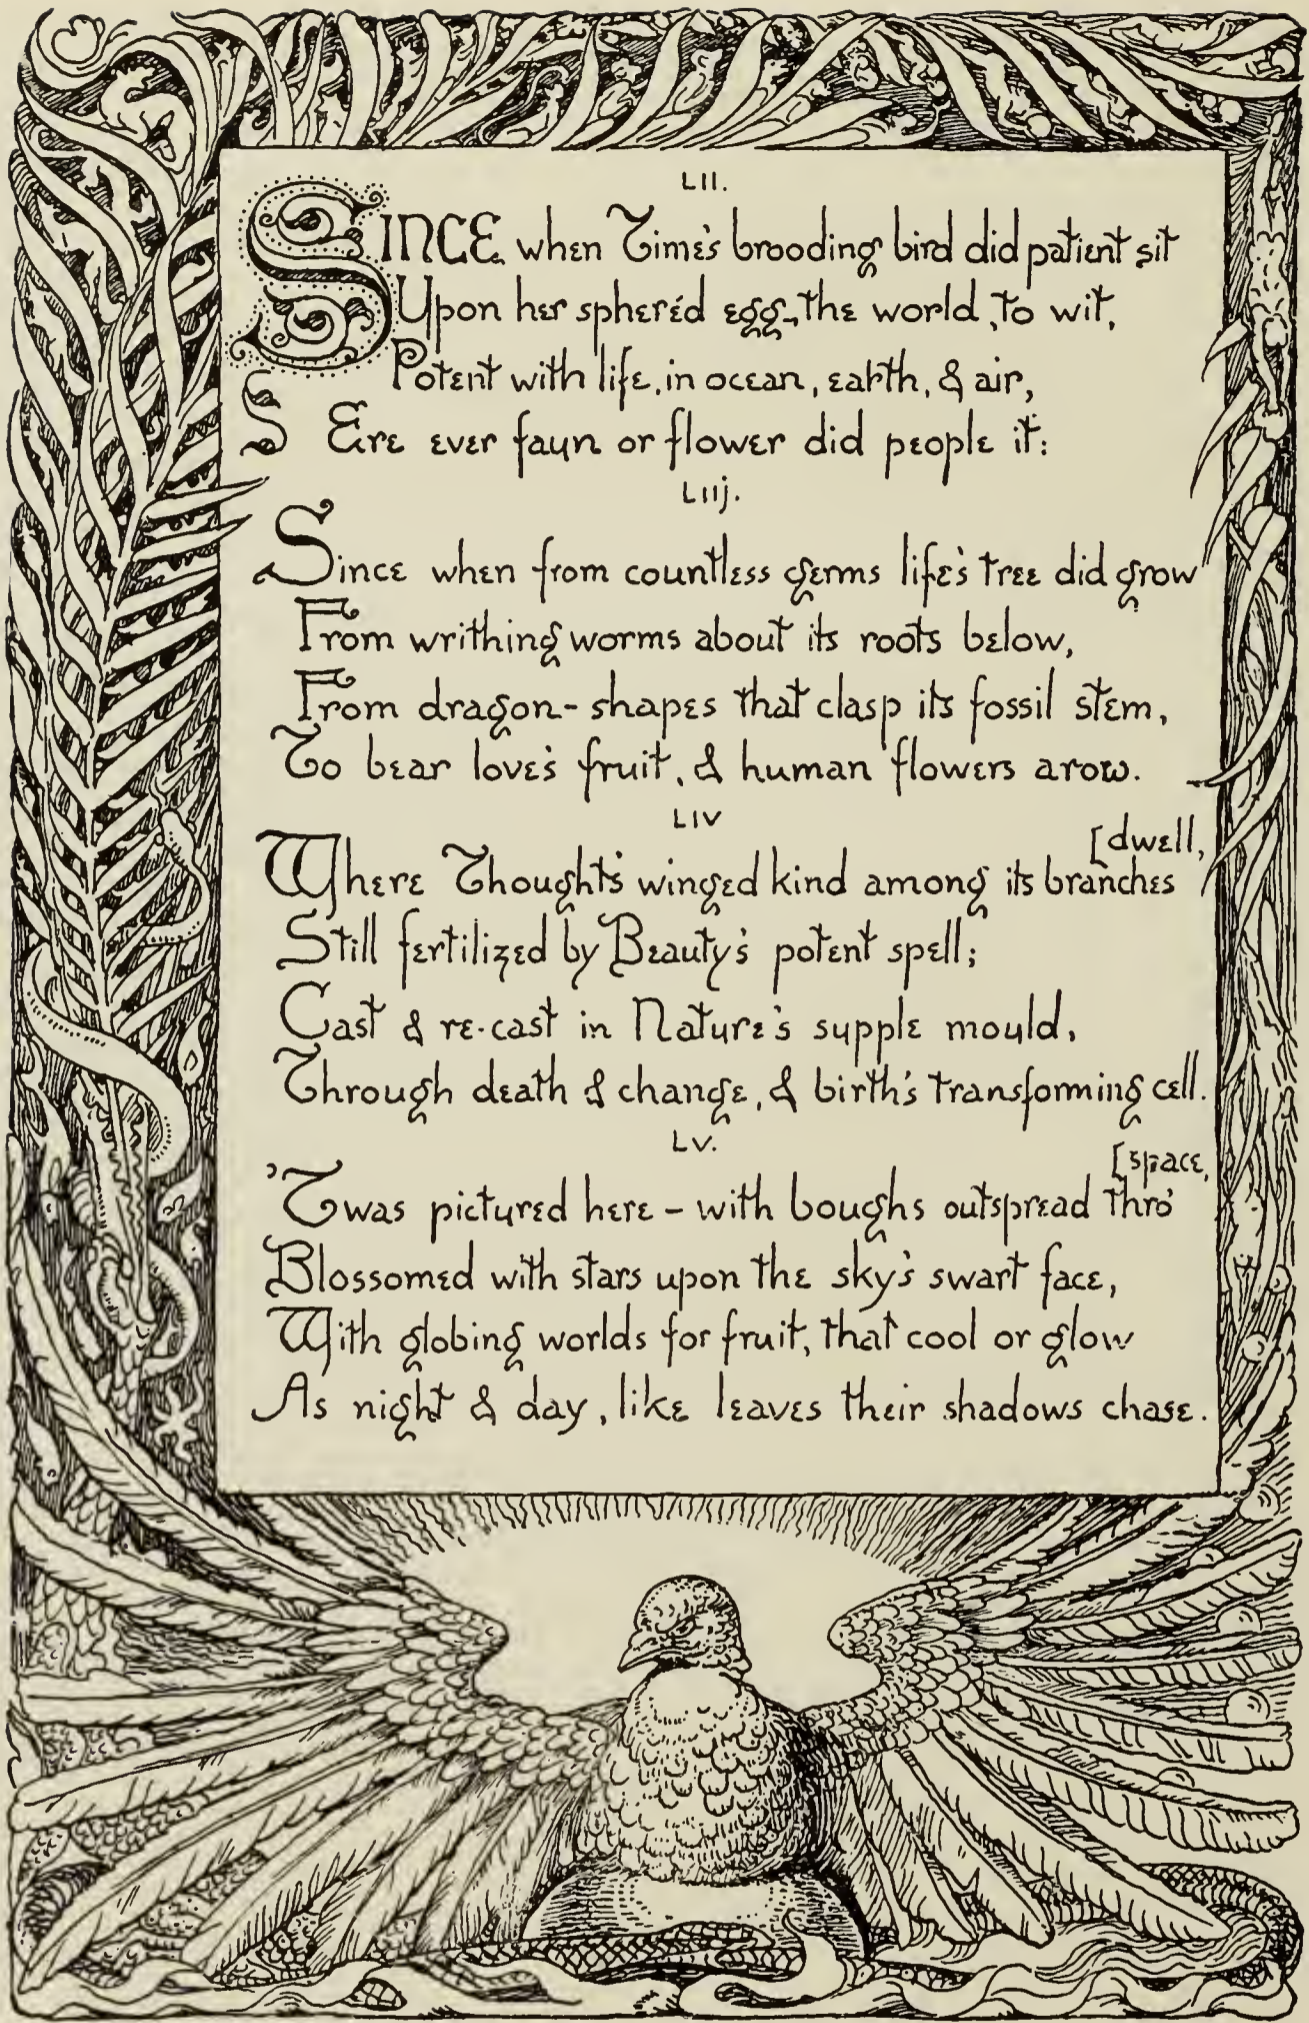 LII.
SINCE when Time's brooding bird did patient sit
Upon her spheréd egg-, the world, to wit,
Potent with life, in ocean, earth, & air,
S Ere ever faun or flower did people it:
LIIj.
Since when from countless germs life's tree did grow
From writhing worms about its roots below,
From dragon-shapes that clasp its fossil stem,
To bear love's fruit, & human flowers arow.
LIV
Where Thought's winged kind among its branches
[dwell,
Still fertilized by Beauty's potent spell;
Cast & re-cast in Nature's supple mould,
Through death & change, & birth's transforming cell.
LV.
'Twas pictured here - with boughs outspread thro'
[space,
Blossomed with stars upon the sky's swart face,
With globing worlds for fruit, that cool or glow
As night & day, like leaves their shadows chase.